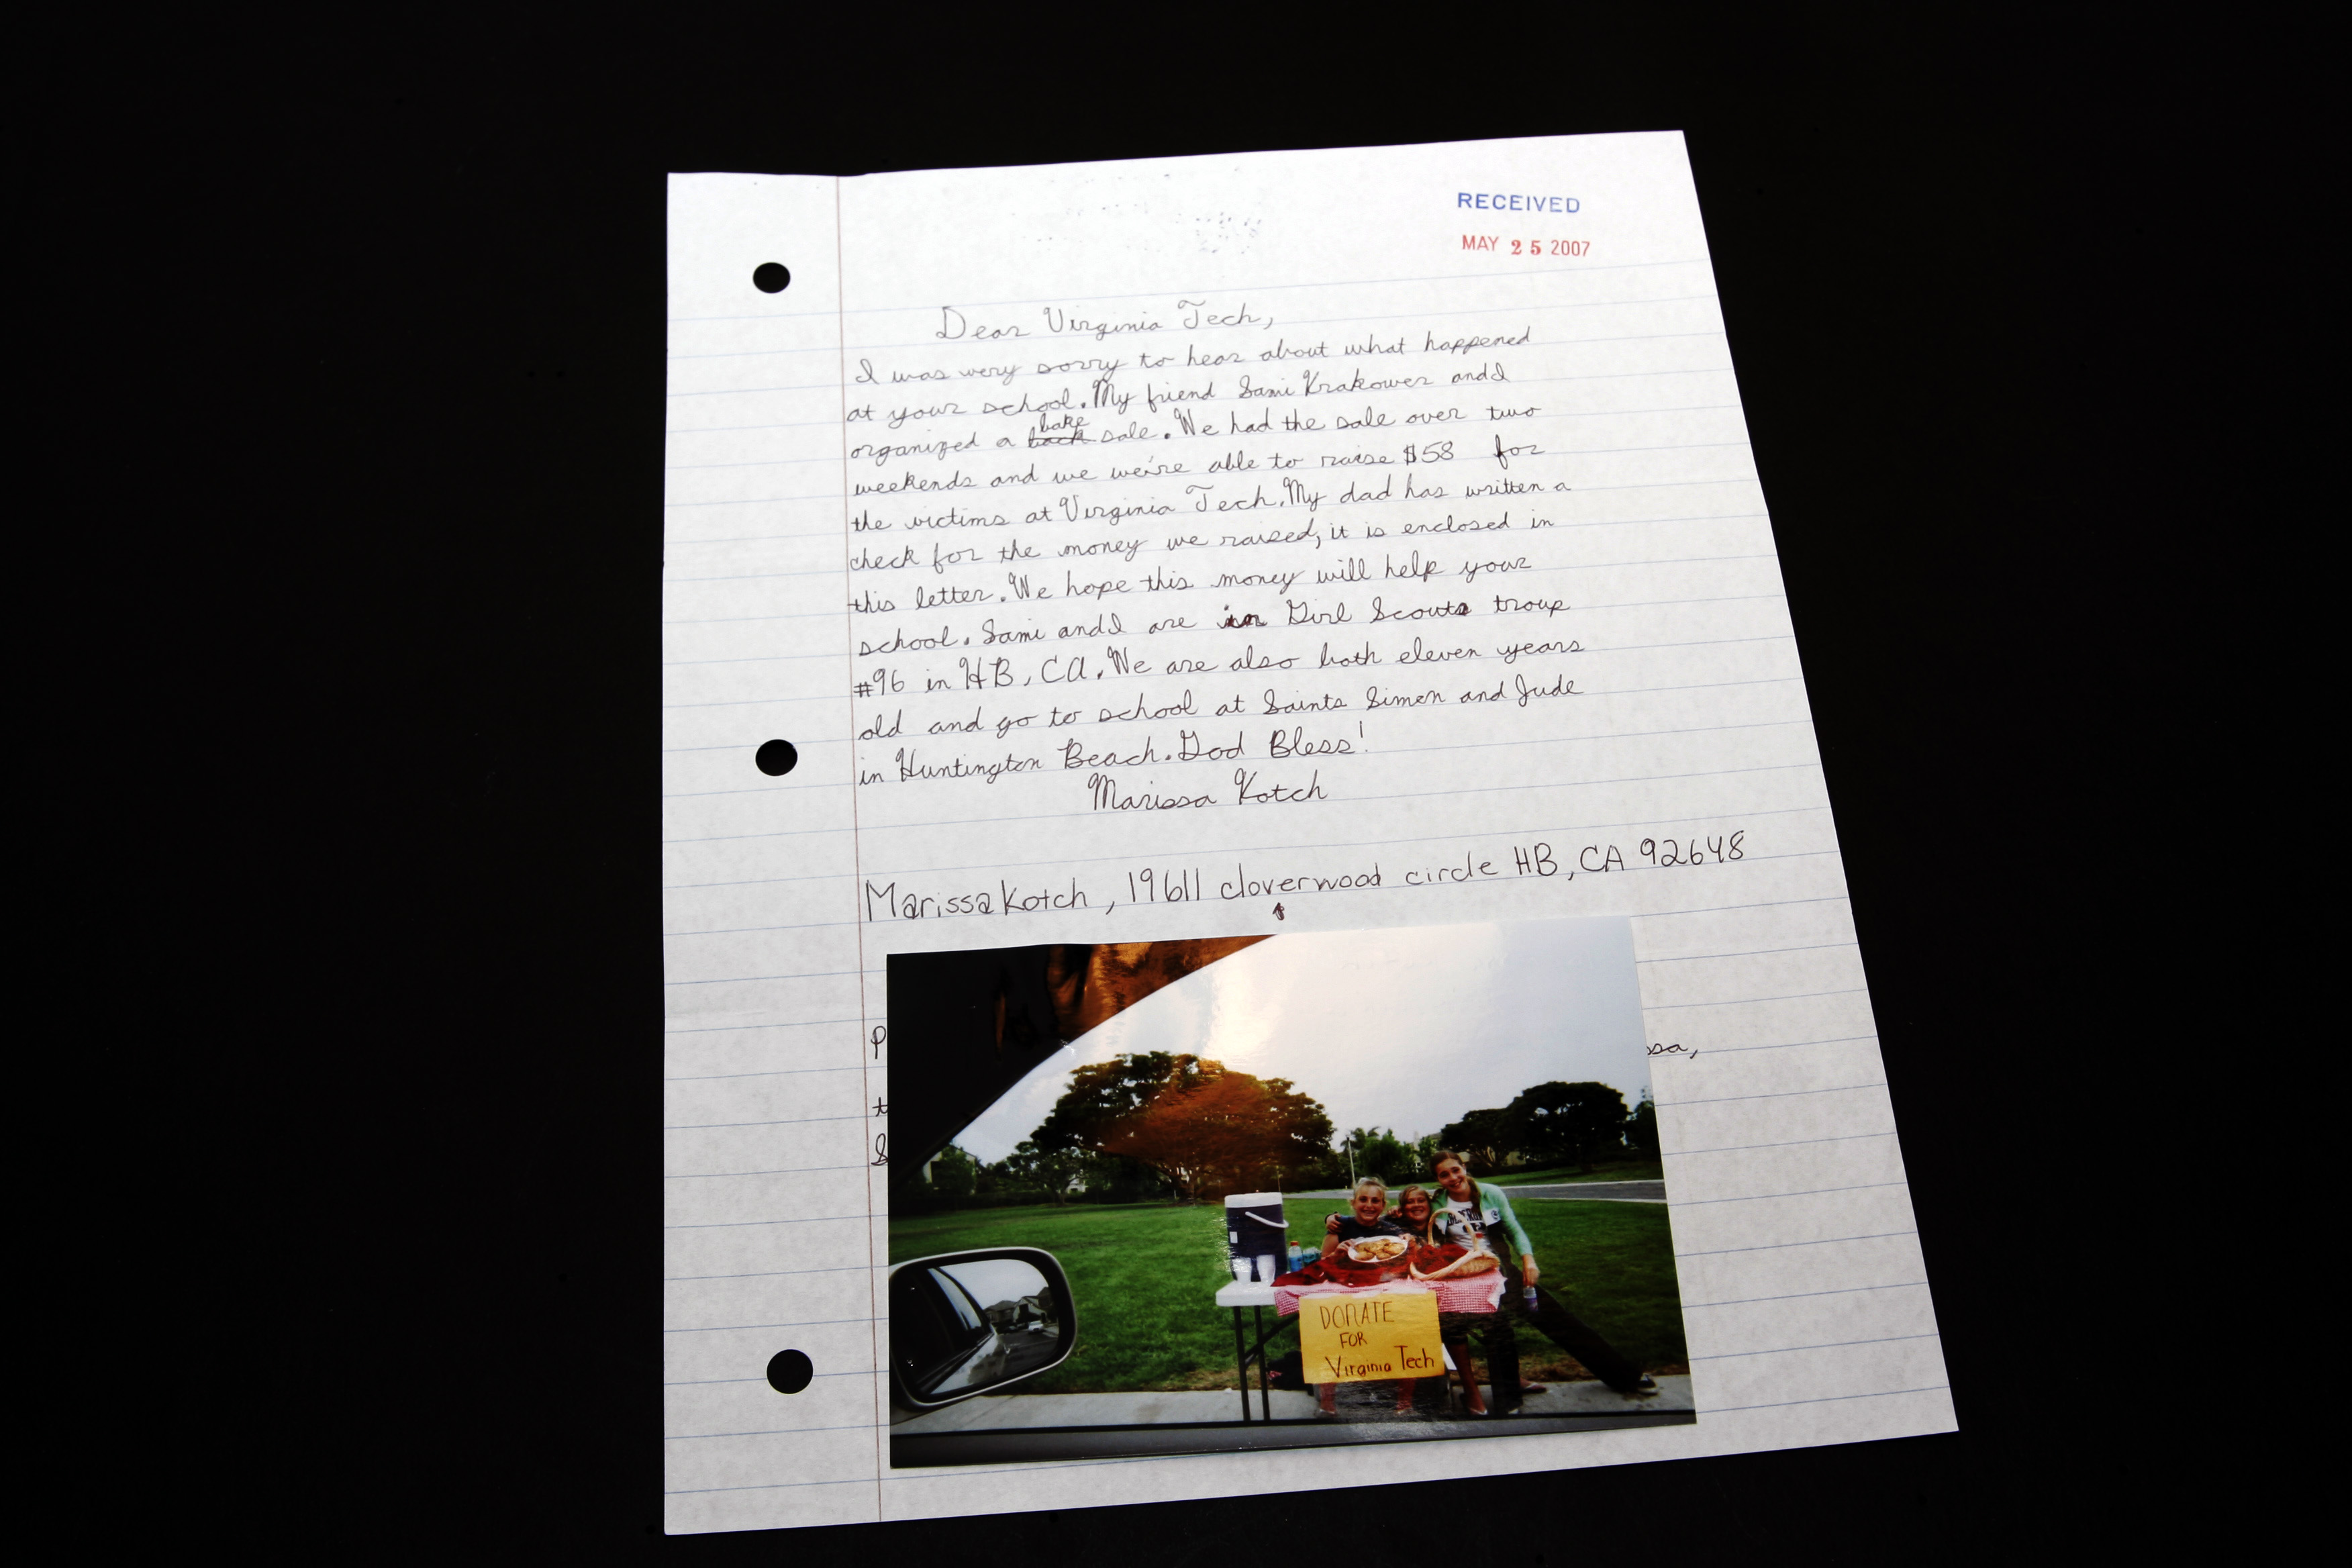 RECEIVED
MAY 25 2007
Dear Virginia Tech,
I was very sorry to hear about what happened
at your school. My friend Sami Krakower and I
bake
organized a back sale. We had the sale over two
weekends and we we're able to raise $58 for
the victims at Virginia Tech. My dad has written a
check for the money we raised, it is enclosed in
this letter. We hope this money will help your
school. Sami and I are in Girl Scouts troup
#96 in HB, CA. We are also both eleven years
old and go to school at Saints Simon and Jude
in Huntington Beach. God Bless!
Marissa Kotch
Marissa Kotch, 19611 cloverwood circle HB, CA 92648
DONATE
FOR
Virginia Tech